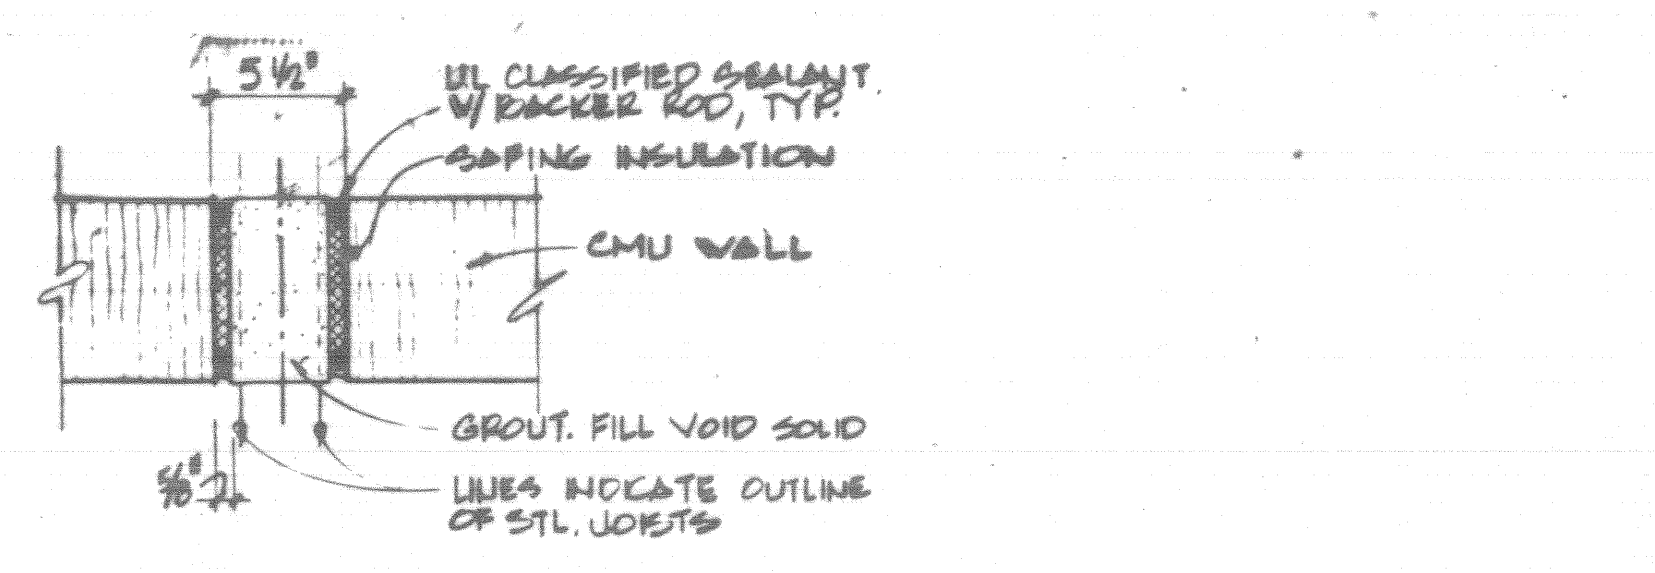 5 ½"
UL CLASSIFIED SEALANT
W/ BACKER ROD, TYP.
SAFING INSULATION
CMU WALL
GROUT. FILL VOID SOLID
LINES INDICATE OUTLINE
OF STL. JOISTS